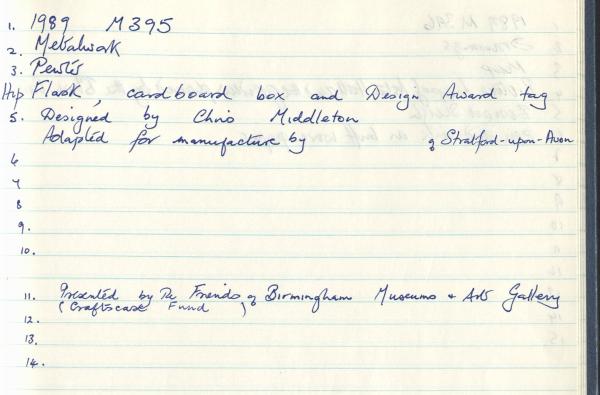 1. 1989 M395
2. Metalwork
3. Pewter
Hip Flask, cardboard box and Design Award tag
5. Designed by Chris Middleton
Adapted for manufacture by of Stratford-upon-Avon
6
7
8
9.
10.
11. Presented by The Friends of Birmingham Museums + Art Gallery
(Craftscase Fund)
12.
13.
14.